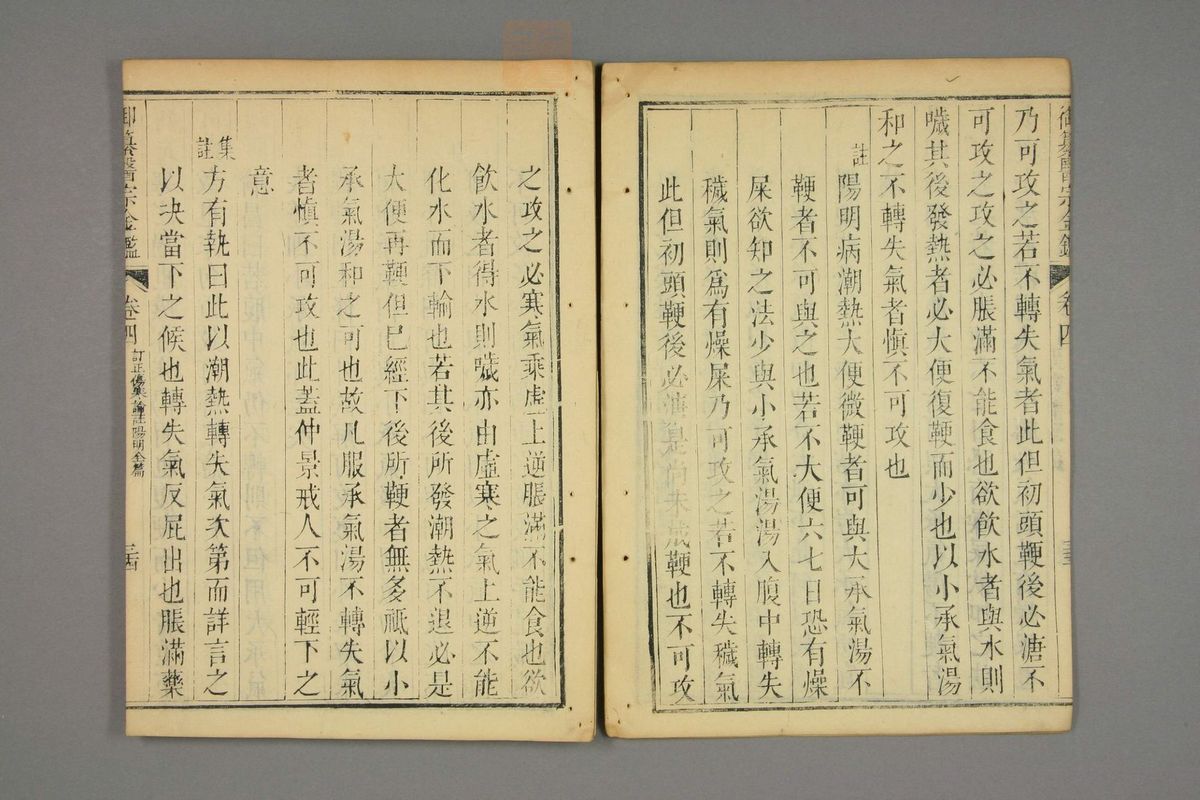 御纂醫宗金鑑 卷四
乃可攻之若不轉失氣者此但初頭鞕後必溏不
可攻之攻之必脹滿不能食也欲飲水者與水則
噦其後發熱者必大便復鞕而少也以小承氣湯
和之不轉失氣者慎不可攻也
註
陽明病潮熱大便微鞕者可與大承氣湯不
鞕者不可與之也若不大便六七日恐有燥
屎欲知之法少與小承氣湯湯入腹中轉失
穢氣則為有燥屎乃可攻之若不轉失穢氣
此但初頭鞕後必溏是尚未成鞕也不可攻
之攻之必寒氣乘虛上逆脹滿不能食也欲
飲水者得水則噦亦由虛寒之氣上逆不能
化水而下輸也若其後所發潮熱不退必是
大便再鞕但已經下後所鞕者無多祗以小
承氣湯和之可也故凡服承氣湯不轉失氣
者慎不可攻也此蓋仲景戒人不可輕下之
意
集註
方有執曰此以潮熱轉失氣次第而詳言之
以決當下之候也轉失氣反屁出也脹滿藥
御纂醫宗金鑑 卷四 訂正傷寒論註陽明全篇 三古